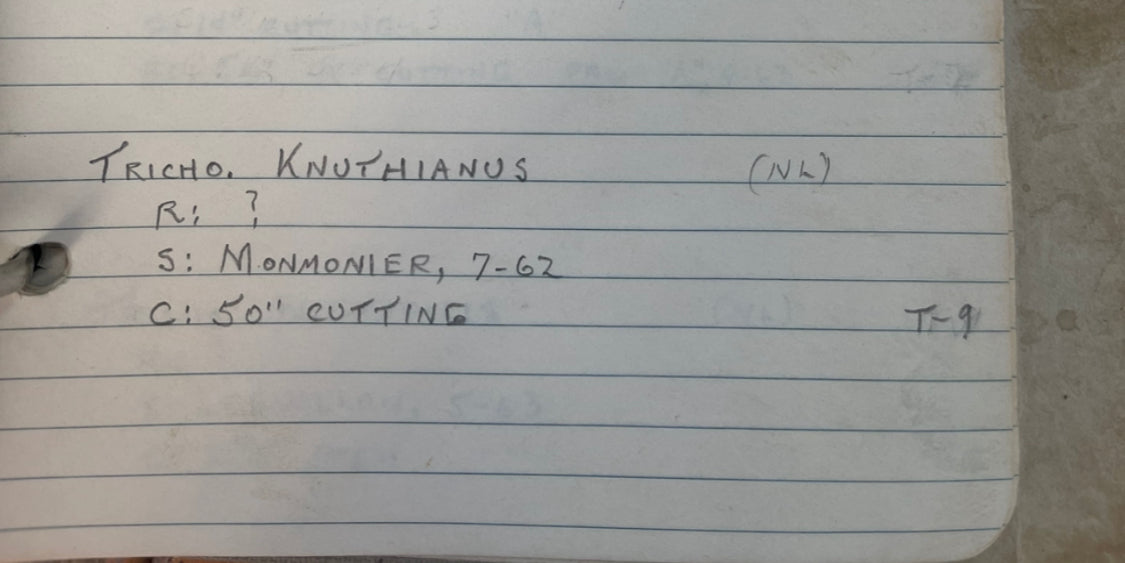 TRICHO. KNUTHIANUS (NL)
R: ?
S: MONMONIER, 7-62
C: 50" CUTTING T-9